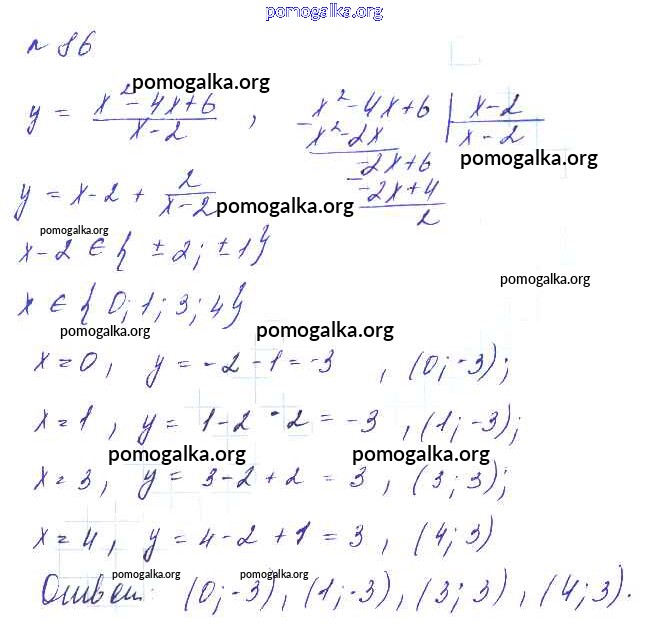 pomogalka.org
№ 86
pomogalka.org
y = (x² - 4x + 6)/(x - 2) ,
x² - 4x + 6 | x - 2
- x² - 2x | x - 2
pomogalka.org
-2x + 6
- -2x + 4
2
y = x - 2 + 2/(x - 2)
pomogalka.org
pomogalka.org
x - 2 ∈ { ± 2; ± 1}
pomogalka.org
x ∈ { 0; 1; 3; 4}
pomogalka.org
pomogalka.org
x = 0, y = -2 - 1 = -3 , (0; -3);
x = 1, y = 1 - 2 - 2 = -3 , (1; -3);
pomogalka.org
pomogalka.org
x = 3, y = 3 - 2 + 2 = 3 , (3; 3);
x = 4, y = 4 - 2 + 1 = 3, (4; 3)
pomogalka.org
pomogalka.org
Ответ: (0; -3), (1; -3), (3; 3), (4; 3).